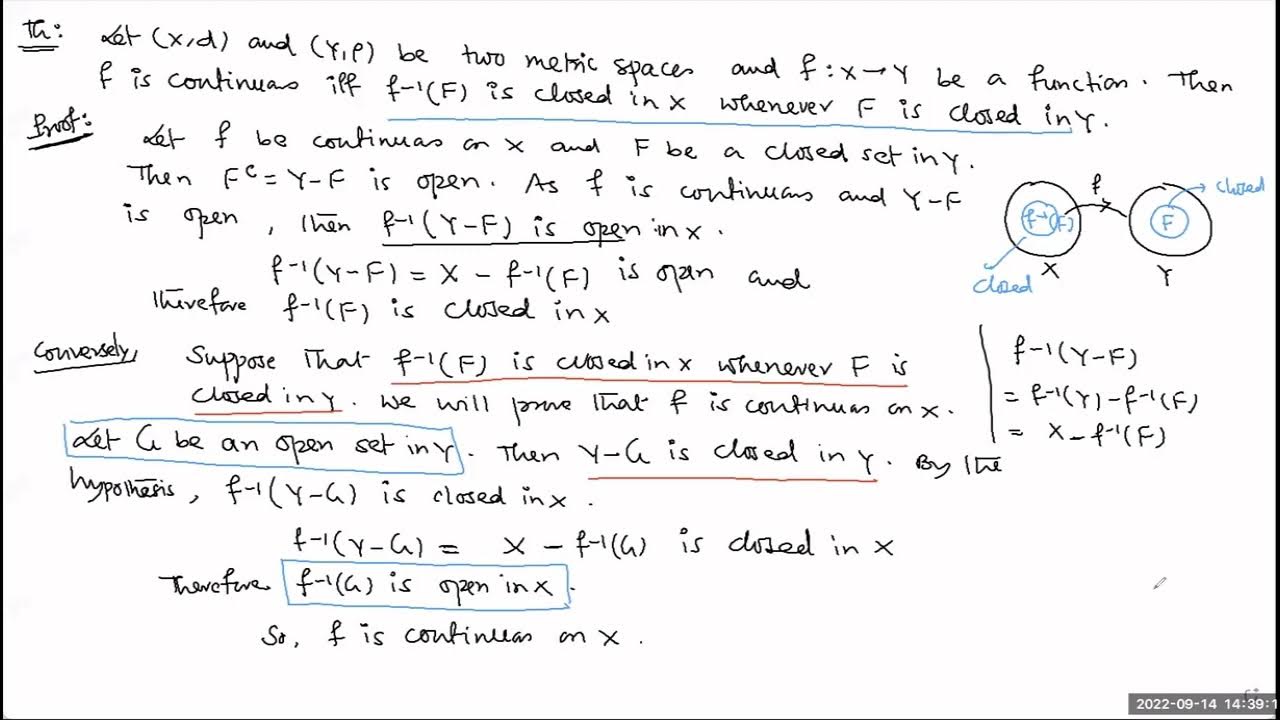 Th: Let (X,d) and (Y,ρ) be two metric spaces and f:X→Y be a function. Then
f is continuas iff f-1(F) is closed in X whenever F is closed in Y.
Proof:
Let f be continuas on X and F be a closed set in Y.
Then Fc = Y-F is open. As f is continuas and Y-F
is open, then f-1(Y-F) is open in X.
f-1(Y-F) = X - f-1(F) is open and
Therefore f-1(F) is closed in X
f
closed
f-1(F)
F
closed
X
Y
Conversely, Suppose that f-1(F) is closed in X whenever F is
closed in Y. We will prove that f is continuas on X.
Let G be an open set in Y. Then Y-G is closed in Y. By the
hypothesis, f-1(Y-G) is closed in X.
f-1(Y-G) = X - f-1(G) is closed in X
Therefore f-1(G) is open in X.
So, f is continuas on X.
f-1(Y-F)
= f-1(Y) - f-1(F)
= X - f-1(F)
2022-09-14 14:39:1